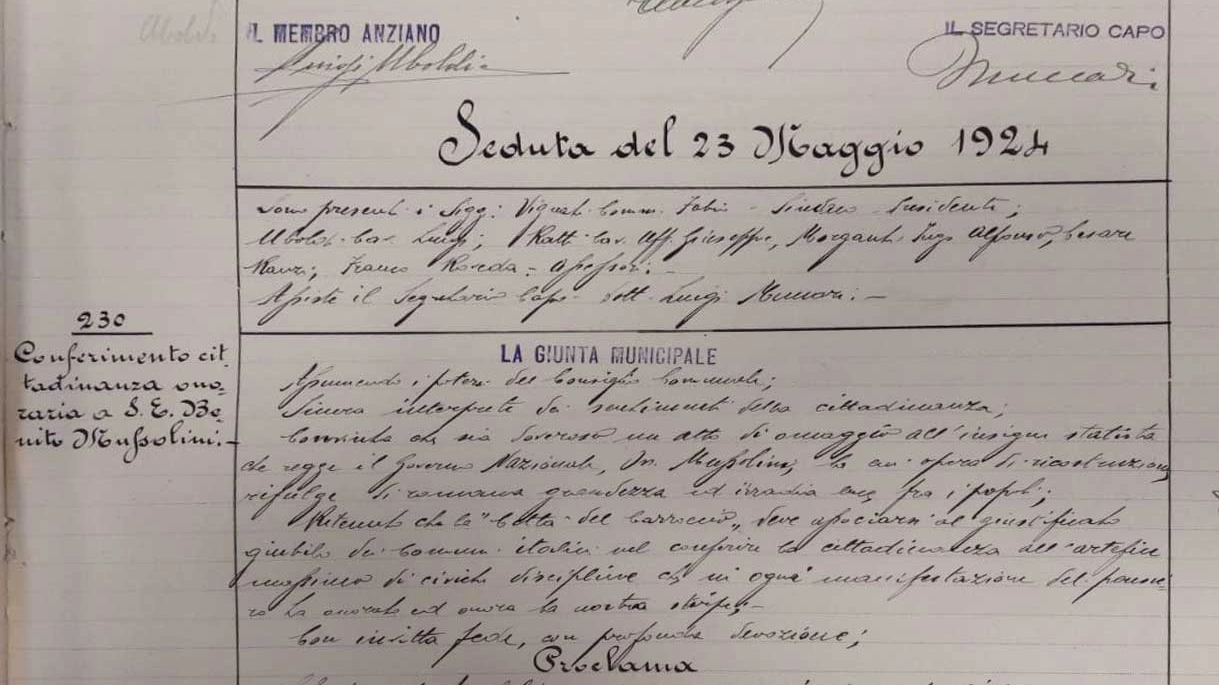 IL MEMBRO ANZIANO
IL SEGRETARIO CAPO
Luigi Uboldi
Munari
Seduta del 23 Maggio 1924
Sono presenti i Sigg: Vignati Comm. Fabio - Sindaco Presidente;
Uboldi Cav. Luigi; Ratti Cav. Uff. Giuseppe, Morganti Ing. Alfonso, Cesare
Franco Assessori. -
Assiste il Segretario Capo Dott. Luigi Munari. -
230
Conferimento cit
tadinanza ono=
raria a S. E. Be
nito Mussolini. -
LA GIUNTA MUNICIPALE
Assumendo i poteri del Consiglio Comunale;
Sicura interprete dei sentimenti della cittadinanza;
Convinta che sia doveroso un atto di omaggio all'insigne statista
che regge il Governo Nazionale, On. Mussolini, la cui opera di ricostruzione
rifulge di romana grandezza ed irradia luce fra i popoli;
Ritenuto che la "Città del Carroccio" deve associarsi al giustificato
giubilo dei Comuni italici nel conferire la cittadinanza all'artefice
massimo di civiche discipline che in ogni manifestazione del pensie=
ro ha onorato ed onora la nostra stirpe; -
Con invitta fede, con profonda devozione;
Proclama